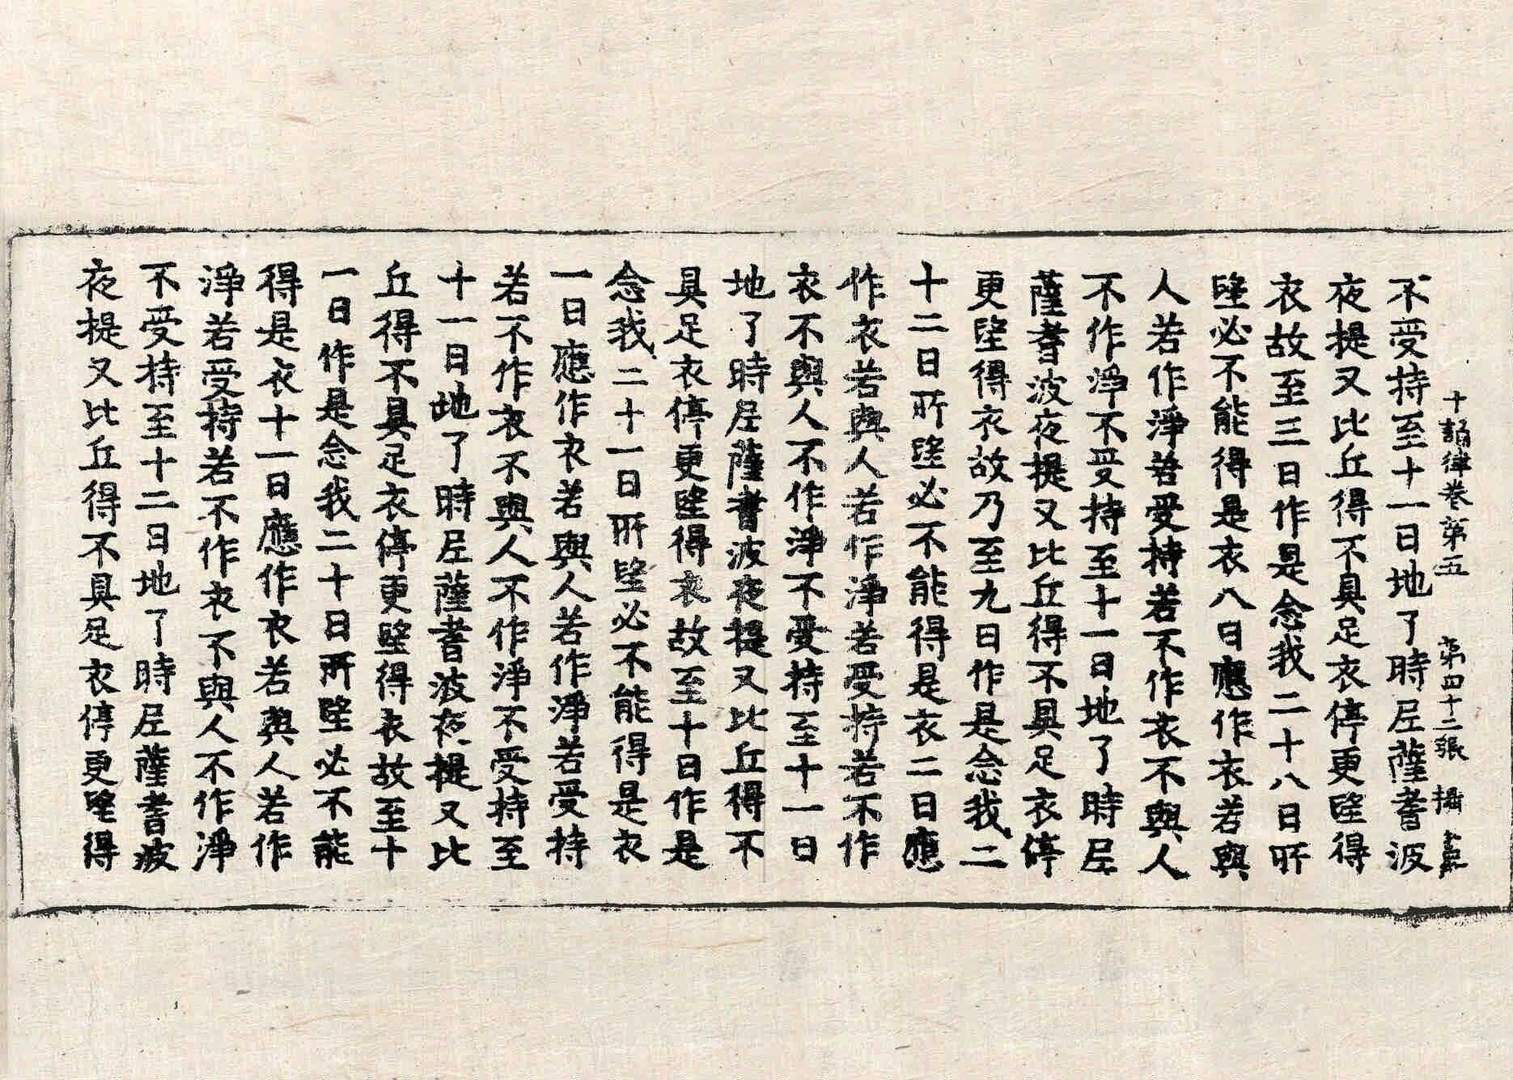 十誦律卷第五 第四十二張 攝
不受持至十一日地了時尼薩耆波
夜提又比丘得不具足衣停更望得
衣故至三日作是念我二十八日所
望必不能得是衣八日應作衣若與
人若作淨若受持若不作衣不與人
不作淨不受持至十一日地了時尼
薩耆波夜提又比丘得不具足衣停
更望得衣故乃至九日作是念我二
十二日所望必不能得是衣二日應
作衣若與人若作淨若受持若不作
衣不與人不作淨不受持至十一日
地了時尼薩耆波夜提又比丘得不
具足衣停更望得衣故至十日作是
念我二十一日所望必不能得是衣
一日應作衣若與人若作淨若受持
若不作衣不與人不作淨不受持至
十一日地了時尼薩耆波夜提又比
丘得不具足衣停更望得衣故至十
一日作是念我二十日所望必不能
得是衣十一日應作衣若與人若作
淨若受持若不作衣不與人不作淨
不受持至十二日地了時尼薩耆波
夜提又比丘得不具足衣停更望得